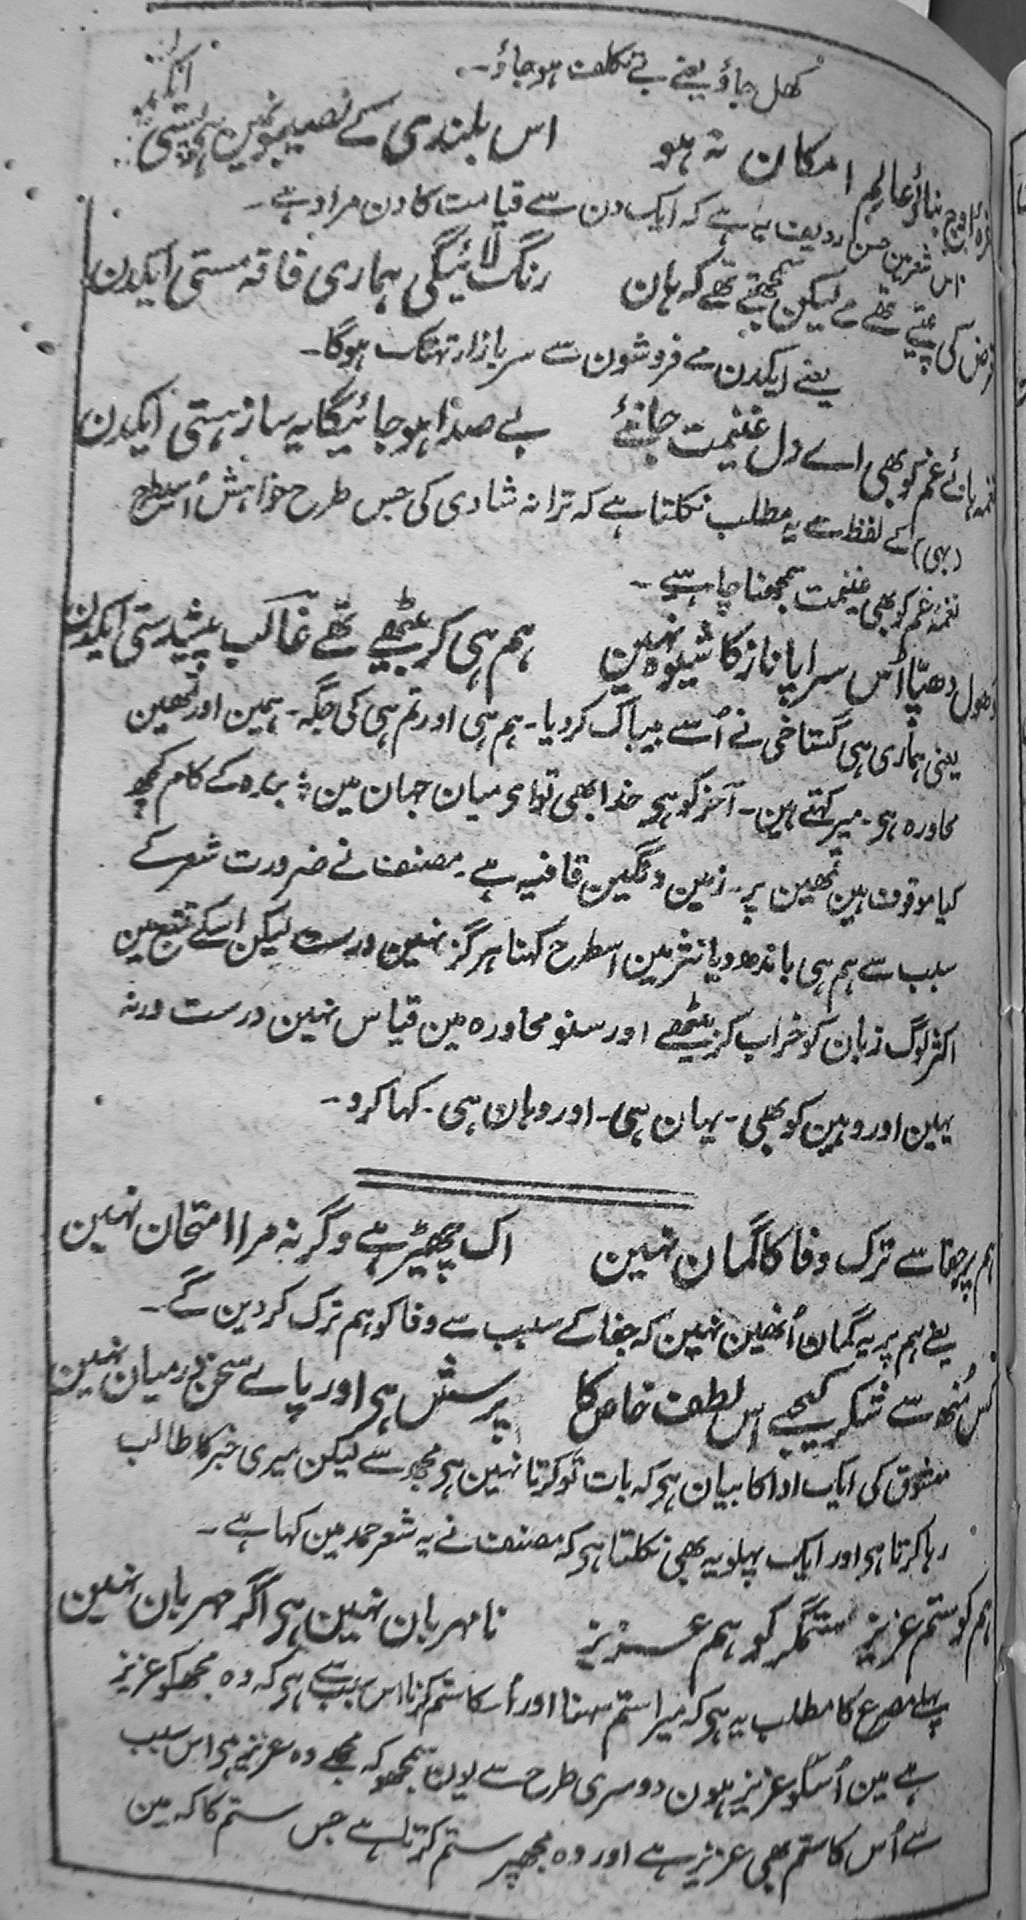 کھل جاؤ یعنے بے تکلف ہو جاؤ۔
غرہ اوج بنائے عالم امکان نہ ہو اس بلندی کے نصیبو نمین ہی پستی ایکدن
اس شعر مین حسن ردیف یہ ہے کہ ایک دن سے قیامت کا دن مراد ہے۔
قرض کی پیتے تھے مے لیکن سمجھتے تھے کہ ہان رنگ لائیگی ہماری فاقہ مستی ایکدن
یعنے ایکدن مے فروشون سے سر بازار تہتک ہوگا۔
نغمہ ہائے غم کو بھی اے دل غنیمت جانئے بے صدا ہو جائیگا یہ ساز ہستی ایکدن
(بھی) کے لفظ سے یہ مطلب نکلتا ہے کہ ترانہ شادی کی جس طرح خواہش اُسطرح
نغمہ غم کو بھی غنیمت سمجھنا چاہیے۔
دھول دھپّا اُس سراپا ناز کا شیوہ نہین ہم ہی کر بیٹھے تھے غالب پیشدستی ایکدن
یعنی ہماری ہی گستاخی نے اُسے بیباک کر دیا۔ ہم ہی اور تم ہی کی جگہ۔ ہمین اور تمھین
محاورہ ہی۔ میر کہتے ہین۔ آخر کو ہی خدا بھی تو ای میان جہان مین ؛ بندہ کے کام کچھ
کیا موقوف ہین تمھین پر۔ زمین و نگین قافیہ ہے۔ مصنف نے ضرورت شعر کے
سبب سے ہم ہی باندھ دیا نثر مین اسطرح کہنا ہرگز نہین درست لیکن اسکے تتبع مین
اکثر لوگ زبان کو خراب کر بیٹھے اور سنو محاورہ مین قیاس نہین درست ورنہ
یہین اور وہین کو بھی۔ یہان ہی۔ اور وہان ہی۔ کہا کرو۔
ہم پر جفا سے ترک وفا کا گمان نہین اک چھیڑ ہے وگرنہ مرا امتحان نہین
یعنے ہم پر یہ گمان اُنھین نہین کہ جفا کے سبب سے وفا کو ہم ترک کر دین گے۔
کس مُنھ سے شکر کیجیے اس لطف خاص کا پرسش ہی اور پاے سخن درمیان نہین
معشوق کی ایک ادا کا بیان ہی کہ بات تو کرتا نہین ہی مجھ سے لیکن میری خبر کا طالب
رہا کرتا ہی اور ایک پہلو یہ بھی نکلتا ہی کہ مصنف نے یہ شعر حمد مین کہا ہے۔
ہم کو ستم عزیز ستمگر کو ہم عزیز نا مہربان نہین ہی اگر مہربان نہین
پہلے مصرع کا مطلب یہ ہی کہ میرا ستم سہنا اور اُسکا ستم کرنا اس سبب سے ہی کہ وہ مجھکو عزیز
ہے مین اُسکو عزیز ہون دوسری طرح سے یون سمجھو کہ مجھے وہ عزیز ہی اس سبب
سے اُس کا ستم بھی عزیز ہے اور وہ مجھپر ستم کرتا ہے جس ستم کا کہ مین